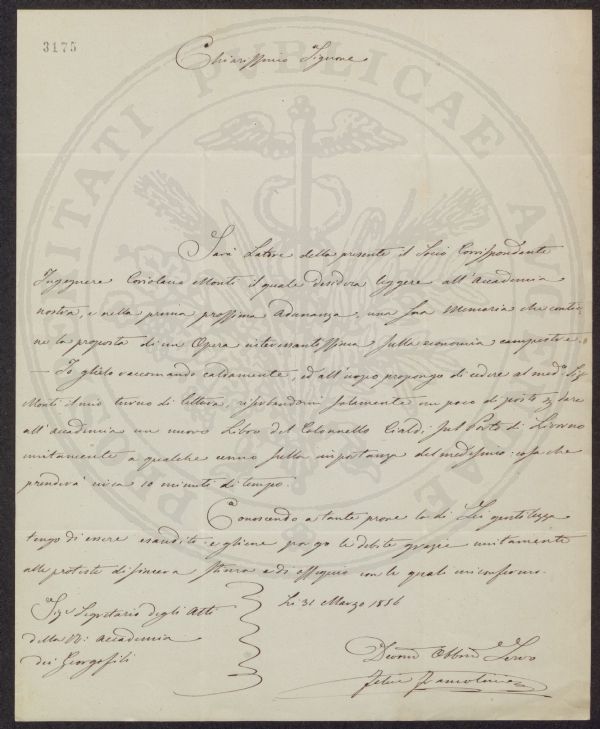 3175
Chiarissimo Signore
Sarà Latore della presente il Socio Corrispondente
Ingegnere Coriolano Monti il quale desidera leggere all'Accademia
nostra, e nella prima prossima Adunanza, una sua Memoria che contie-
ne la proposta di un Opera interessantissima sulla economia campestre.
— Io glielo raccomando caldamente, ed all'uopo propongo di cedere al med.o Sig.
Monti il mio turno di lettura, riserbandomi solamente un poco di posto per dare
all'Accademia un nuovo Libro del Colonnello Cialdi sul Porto di Livorno
unitamente a qualche cenno sulla importanza del medesimo: cosa che
prenderà circa 10 minuti di tempo.
Conoscendo a tante prove la di Lei gentilezza
tengo di essere esaudito e gliene porgo le debite grazie unitamente
alle proteste di sincera stima e di ossequio con le quali mi confermo.
Li 31 Marzo 1856
Sig.r Segretario degli Atti
della R. Accademia
dei Georgofili
Devmo Obbmo Servo
Felice Francolini
PUBLICAE